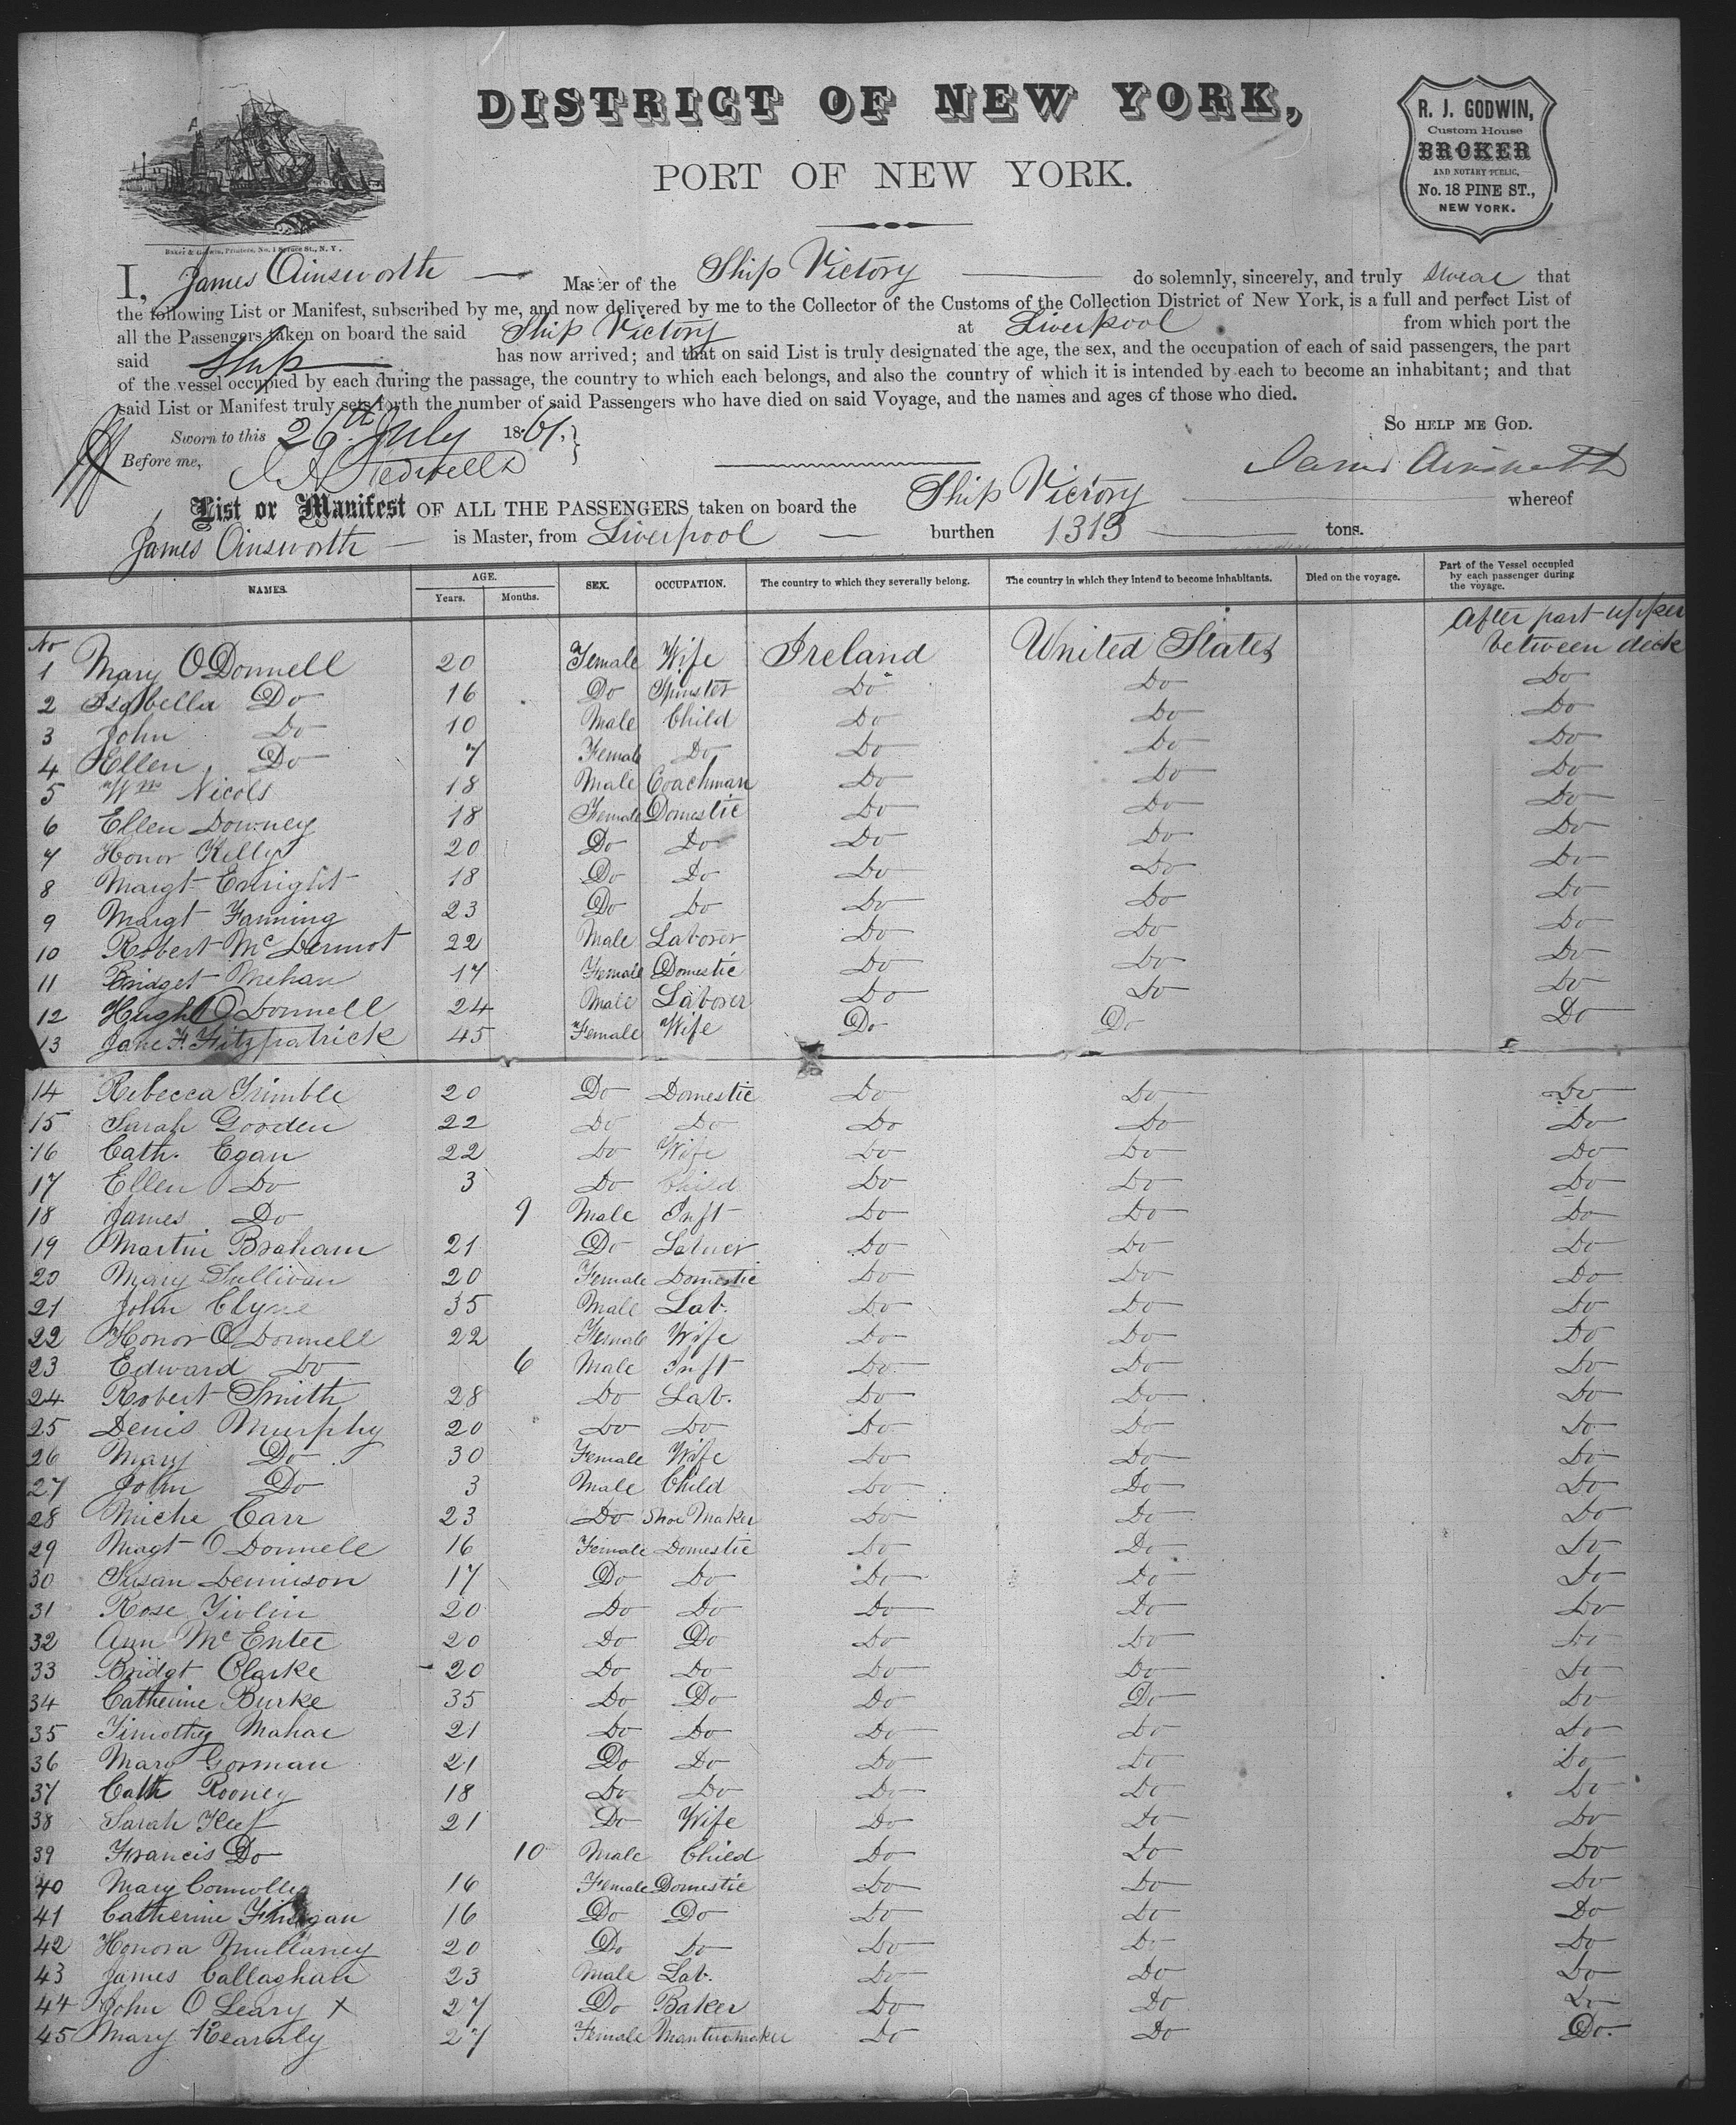 DISTRICT OF NEW YORK,
PORT OF NEW YORK.
R. J. GODWIN,
Custom House
BROKER
AND NOTARY PUBLIC,
No. 18 PINE ST.,
NEW YORK.
Baker & Godwin, Printers, No. 1 Spruce St., N. Y.
I, James Ainsworth Master of the Ship Victory do solemnly, sincerely, and truly swear that
the following List or Manifest, subscribed by me, and now delivered by me to the Collector of the Customs of the Collection District of New York, is a full and perfect List of
all the Passengers taken on board the said Ship Victory at Liverpool from which port the
said Ship has now arrived; and that on said List is truly designated the age, the sex, and the occupation of each of said passengers, the part
of the vessel occupied by each during the passage, the country to which each belongs, and also the country of which it is intended by each to become an inhabitant; and that
said List or Manifest truly sets forth the number of said Passengers who have died on said Voyage, and the names and ages of those who died.
So HELP ME GOD.
Sworn to this 26th July 1861,
Before me,
James Ainsworth
List or Manifest OF ALL THE PASSENGERS taken on board the Ship Victory whereof
James Ainsworth is Master, from Liverpool burthen 1313 tons.
NAMES. AGE. Years. Months. SEX. OCCUPATION. The country to which they severally belong. The country in which they intend to become inhabitants. Died on the voyage. Part of the Vessel occupied by each passenger during the voyage.
No After part upper
1 Mary O'Donnell 20 Female Wife Ireland United States between deck
2 Isabella Do 16 Do Spinster Do Do Do
3 John Do 10 Male Child Do Do Do
4 Ellen Do 7 Female Do Do Do Do
5 Wm Nicols 18 Male Coachman Do Do Do
6 Ellen Downey 18 Female Domestic Do Do Do
7 Honor Kelly 20 Do Do Do Do Do
8 Margt Enright 18 Do Do Do Do Do
9 Margt Fanning 23 Do Do Do Do Do
10 Robert McDermot 22 Male Laborer Do Do Do
11 Bridget Mehan 17 Female Domestic Do Do Do
12 Hugh O'Donnell 24 Male Laborer Do Do Do
13 Jane F. Fitzpatrick 45 Female Wife Do Do Do
14 Rebecca Trimble 20 Do Domestic Do Do Do
15 Sarah Gooden 22 Do Do Do Do Do
16 Cath. Egan 22 Do Wife Do Do Do
17 Ellen Do 3 Do Child Do Do Do
18 James Do 9 Male Inft Do Do Do
19 Martin Braham 21 Do Laborer Do Do Do
20 Mary Sullivan 20 Female Domestic Do Do Do
21 John Clyne 35 Male Lab. Do Do Do
22 Honor O'Donnell 22 Female Wife Do Do Do
23 Edward Do 6 Male Inft Do Do Do
24 Robert Smith 28 Do Lab. Do Do Do
25 Denis Murphy 20 Do Do Do Do Do
26 Mary Do 30 Female Wife Do Do Do
27 John Do 3 Male Child Do Do Do
28 Miche Carr 23 Do Shoe Maker Do Do Do
29 Magt O'Donnell 16 Female Domestic Do Do Do
30 Susan Dennison 17 Do Do Do Do Do
31 Rose 20 Do Do Do Do Do
32 Ann McEntee 20 Do Do Do Do Do
33 Bridgt Clarke 20 Do Do Do Do Do
34 Catherine Burke 35 Do Do Do Do Do
35 Timothy Mahar 21 Do Do Do Do Do
36 Mary Gorman 21 Do Do Do Do Do
37 Cath Rooney 18 Do Do Do Do Do
38 Sarah Keef 21 Do Wife Do Do Do
39 Francis Do 10 Male Child Do Do Do
40 Mary Connolly 16 Female Domestic Do Do Do
41 Catherine Finigan 16 Do Do Do Do Do
42 Honora Mullaney 20 Do Do Do Do Do
43 James Callaghan 23 Male Lab. Do Do Do
44 John O'Leary X 27 Do Baker Do Do Do
45 Mary Kearnly 27 Female Mantuamaker Do Do Do